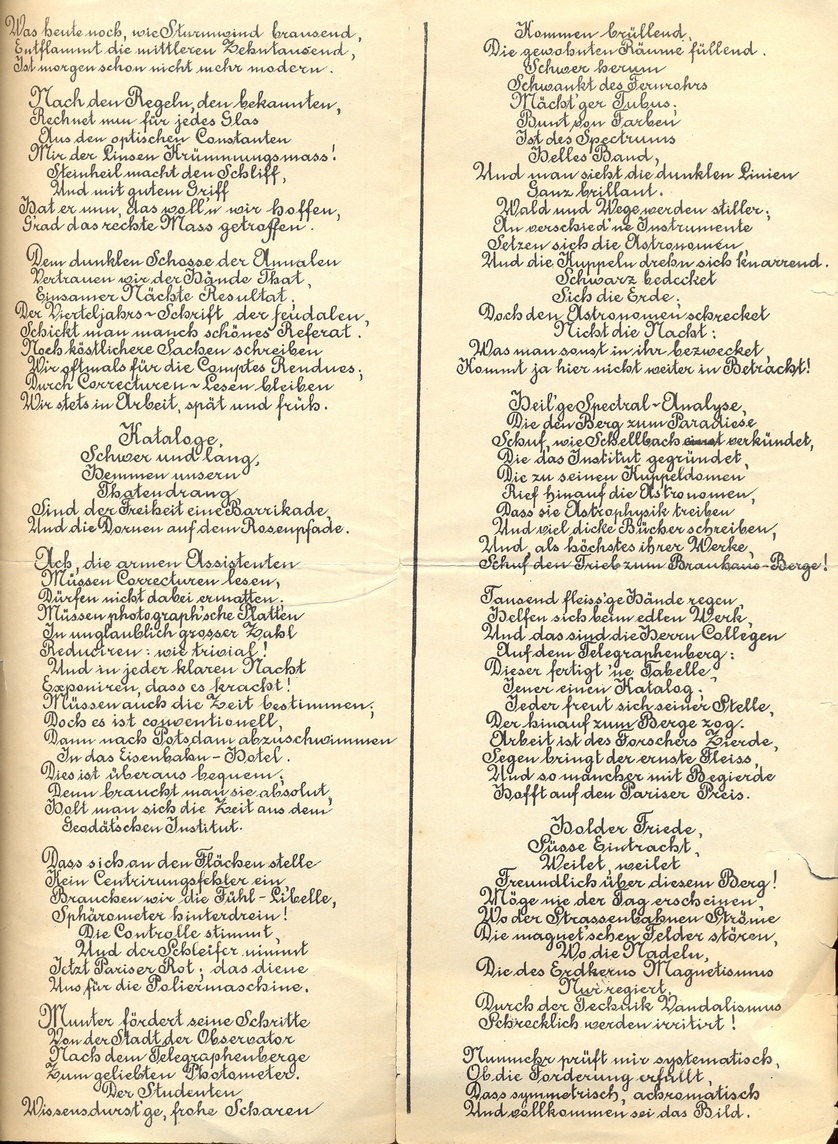 Was heute noch, wie Sturmwind brausend,
Entflammt die mittleren Zehntausend,
Ist morgen schon nicht mehr modern.
Nach den Regeln, den bekannten,
Rechnet nun für jedes Glas
Aus den optischen Constanten
Mir der Linsen Krümmungsmass!
Steinheil macht den Schliff,
Und mit gutem Griff
Hat er nun, das woll'n wir hoffen,
Grad das rechte Mass getroffen.
Dem dunklen Schosse der Annalen
Vertrauen wir der Hände That,
Einsamer Nächte Resultat;
Der Vierteljahrs-Schrift, der feudalen,
Schickt man manch schönes Referat.
Noch köstlichere Sachen schreiben
Wir oftmals für die Comptes Rendues;
Durch Correcturen-Lesen bleiben
Wir stets in Arbeit, spät und früh.
Kataloge,
Schwer und lang,
Hemmen unsern
Thatendrang
Sind der Freiheit eine Barrikade
Und die Dornen auf dem Rosenpfade.
Ach, die armen Assistenten
Müssen Correcturen lesen,
Dürfen nicht dabei ermatten;
Müssen photograph'sche Platten
In unglaublich grosser Zahl
Reduciren: wie trivial!
Und in jeder klaren Nacht
Exponiren, dass es kracht!
Müssen auch die Zeit bestimmen;
Doch es ist conventionell,
Dann nach Potsdam abzuschwimmen
In das Eisenbahn-Hotel.
Dies ist überaus bequem;
Denn braucht man sie absolut,
Holt man sich die Zeit aus dem
Geodät'schen Institut.
Dass sich an den Flächen stelle
Kein Centrirungsfehler ein,
Brauchen wir die Fühl-Libelle,
Sphärometer hinterdrein!
Die Controlle stimmt,
Und der Schleifer nimmt
Jetzt Pariser Rot; das diene
Uns für die Poliermaschine.
Munter fördert seine Schritte
Von der Stadt der Observator
Nach dem Telegraphenberge
Zum geliebten Photometer.
Der Studenten
Wissensdurst'ge, frohe Scharen
Kommen brüllend,
Die gewohnten Räume füllend.
Schwer herum
Schwankt des Fernrohrs
Mächt'ger Tubus;
Bunt von Farben
Ist des Spectrums
Helles Band,
Und man sieht die dunklen Linien
Ganz brillant.
Wald und Wege werden stiller;
An verschied'ne Instrumente
Setzen sich die Astronomen
Und die Kuppeln drehn sich knarrend.
Schwarz bedecket
Sich die Erde;
Doch den Astronomen schrecket
Nicht die Nacht:
Was man sonst in ihr bezwecket,
Kommt ja hier nicht weiter in Betracht!
Heil'ge Spectral-Analyse,
Die den Berg zum Paradiese
Schuf, wie Schellbach einst verkündet,
Die das Institut gegründet,
Die zu seinen Kuppeldomen
Rief hinauf die Astronomen,
Dass sie Astrophysik treiben
Und viel dicke Bücher schreiben,
Und, als höchstes ihrer Werke,
Schuf den Trieb zum Brauhaus-Berge!
Tausend fleiss'ge Hände regen,
Helfen sich beim edlen Werk,
Und das sind die Herrn Collegen
Auf dem Telegraphenberg:
Dieser fertigt 'ne Tabelle,
Jener einen Katalog;
Jeder freut sich seiner Stelle,
Der hinauf zum Berge zog.
Arbeit ist des Forschers Zierde,
Segen bringt der ernste Fleiss,
Und so mancher mit Begierde
Hofft auf den Pariser Preis.
Holder Friede,
Süsse Eintracht,
Weilet, weilet
Freundlich über diesem Berg!
Möge nie der Tag erscheinen,
Wo der Strassenbahnen Ströme
Die magnet'schen Felder stören,
Wo die Nadeln,
Die des Erdkerns Magnetismus
Nur regiert,
Durch der Technik Vandalismus
Schrecklich werden irritirt!
Nunmehr prüft mir systematisch,
Ob die Forderung erfüllt,
Dass symmetrisch, achromatisch
Und vollkommen sei das Bild.